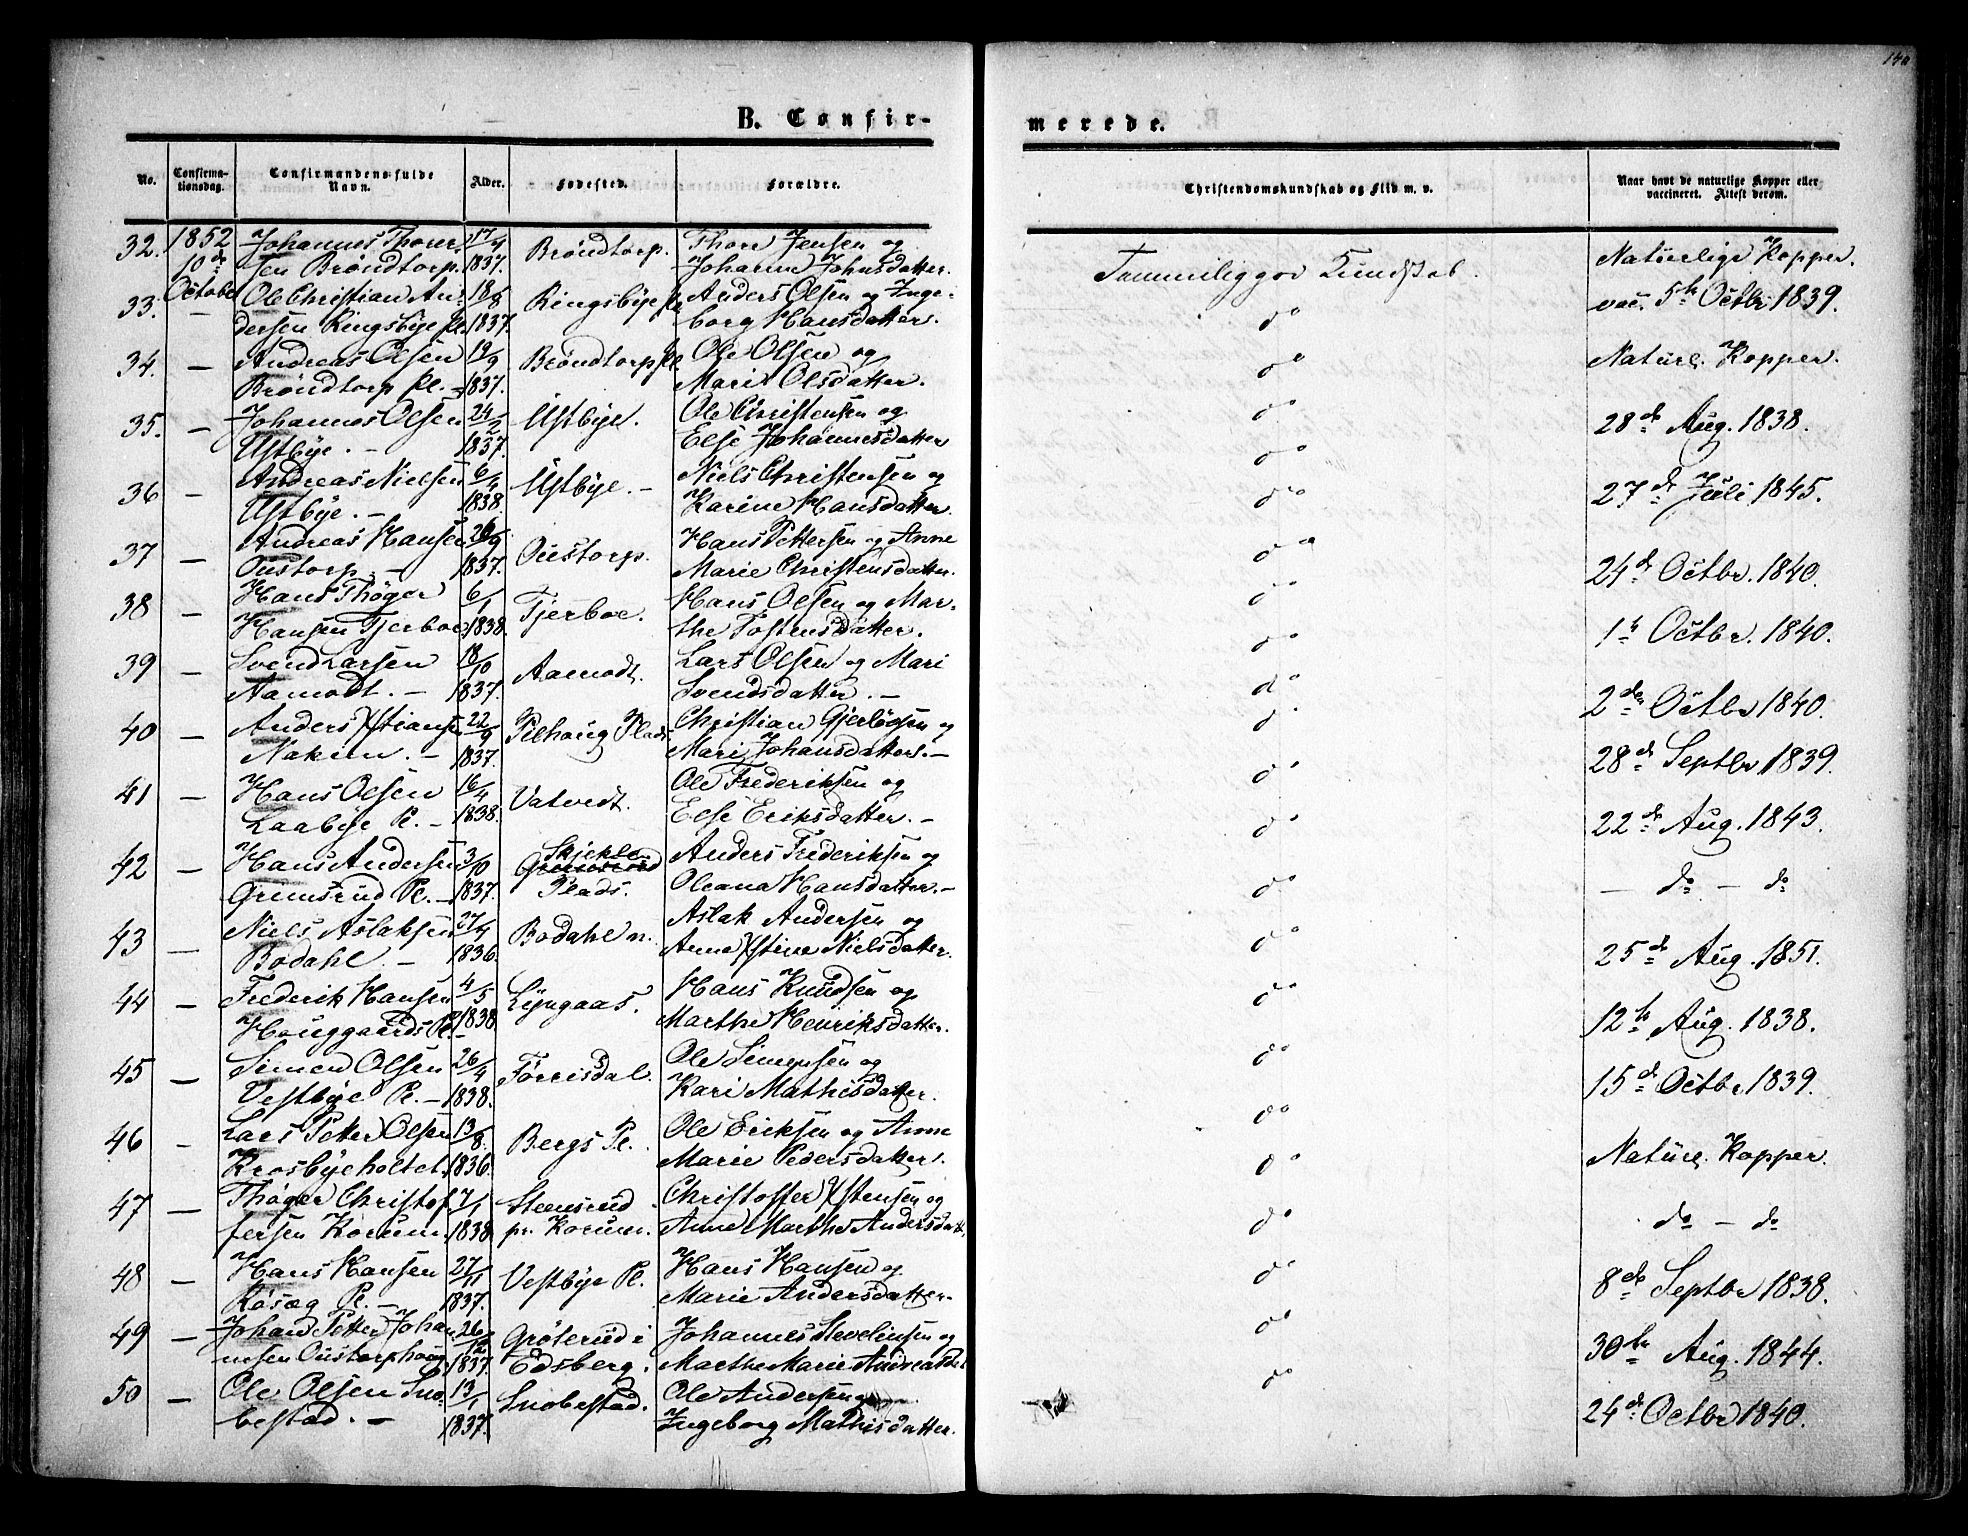 140
B. Confir-
merede.
No.
Confirma-
tionsdag.
Confirmandens fulde
Navn.
Alder.
Fødested.
Forældre.
Christendomskundskab og Flid m. v.
Naar havt de naturlige Kopper eller
vaccineret. Attest derom.
32. 1852 Johannes Thorer 17/4 Brøndtorp. Thore Jensen og
10de sen Brøndtorp. 1837. Johanne Johnsdatter. Temmelig god Kundskab. Naturlige Kopper.
33. October Ole Christian An- 18/8 Ringsbye Pl. Anders Olsen og Inge-
– dersen Ringsbye Pl. 1837. borg Hansdatter. do vac. 5te Octbr 1839.
34. – Andreas Olsen 19/9 Brøndtorp Pl. Ole Olsen og
Brøndtorp Pl. – 1837. Marit Olsdatter. do Naturl. Kopper.
35. – Johannes Olsen 24/2 Ustbye. Ole Christensen og
Ustbye. – 1837. Else Johannesdatter do 28de Aug. 1838.
36 – Andreas Nielsen 6/4 Ustbye. – Niels Christensen og
Ustbye. – 1838 Karine Hansdatter. do 27de Juli 1845.
37 – Andreas Hansen 26/9 Oustorp. Hans Pettersen og Anne
Oustorp. – 1837. Marie Christensdatter. do 24de Octbr. 1840.
38 – Hans Thøger 6/1 Tjerboe. Hans Olsen og Mar-
Hansen Tjerboe 1838. the Tostensdatter. do 1te Octbr. 1840.
39 – Svend Larsen 18/10 Aamodt. Lars Olsen og Mari
Aamodt. – 1837. Svendsdatter. – do 2den Octbr 1840.
40 – Anders Xstiansen 22/9 Pilhoug Plads Christian Gjerløgsen og
Nakien. – 1837. Mari Johansdatter. – do 28de Septbr 1839.
41 – Hans Olsen 16/4 Vatvedt. Ole Frederiksen og
Laabye Pl. – 1838. Else Eriksdatter. – do 22de Aug. 1843.
42 – Hans Andersen 3/10 Skjekle Anders Frederiksen og
Grimsrud Pl. – 1837. Plads. Oleana Hansdatter. – do – do – do
43 – Niels Aslaksen 27/4 Bodahl n. Aslak Andersen og
Bodahl. – 1836. Anne Xstine Nielsdatter. do 25de Aug. 1851.
44 – Frederik Hansen 4/5 Lyngaas. Hans Knudsen og
Houggaards Pl. – 1838 Marthe Henriksdatter. do 12te Aug. 1838.
45 – Simen Olsen 26/4 Torrisdal. Ole Simensen og
Vestbye Pl. – 1838. Kari Mathisdatter. do 15de Octbr 1839.
46 – Lars Petter Olsen 13/8 Bergs Pl. Ole Eriksen og Anne
Krosbyeholtet. 1836. Marie Pedersdatter. do Naturl. Kopper.
47 – Thøger Christof- 7/1 Steensrud Christoffer Xstensen og
fersen Korum. 1838 pr. Korum. Anne Marthe Andersdatt. do do – do
48 – Hans Hansen 27/11 Vestbye Pl. Hans Hansen og
Kosæg Pl. – 1837. Marie Andersdatter. do 8de Septbr 1838.
49 – Johan Petter Johan- 26/12 Grøterud i Johannes Stevelinsen og
nesen Oustorphoug 1837. Edsberg. Marthe Marie Andreasdt. do 30te Aug. 1844.
50 – Ole Olsen Sno- 13/1 Snobestad. Ole Andersen og
bestad. – 1837. Ingeborg Mathisdatter. do 24de Octbr 1840.